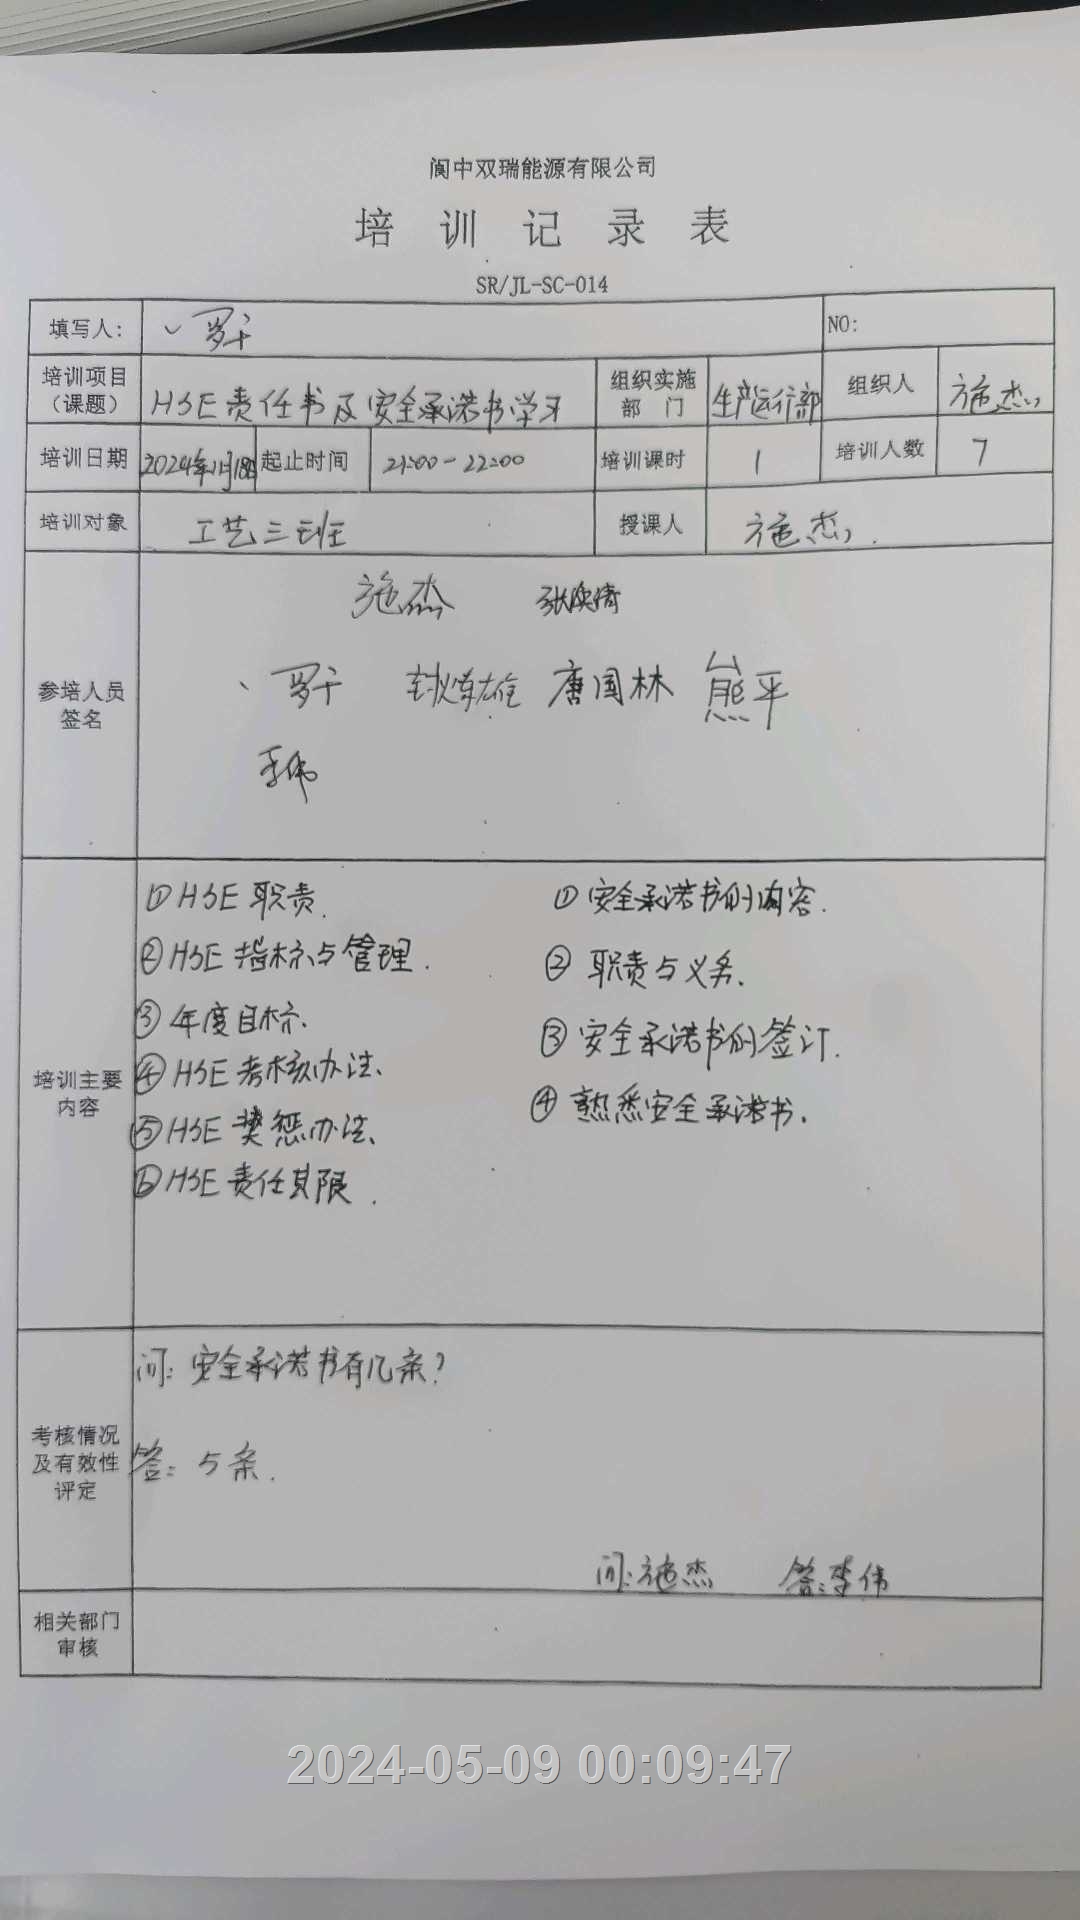 阆中双瑞能源有限公司
培训记录表
SR/JL-SC-014
填写人： 罗干 NO:
培训项目（课题） HSE责任书及安全承诺书学习 组织实施部门 生产运行部 组织人 施杰
培训日期 2024年11月18日 起止时间 21:00-22:00 培训课时 1 培训人数 7
培训对象 工艺三班 授课人 施杰.
施杰
参培人员签名
罗干 唐国林 熊平
李伟
①HSE 职责. ①安全承诺书的内容.
②HSE 指标与管理. ②职责与义务.
③年度目标. ③安全承诺书的签订.
培训主要内容
④HSE考核办法. ④熟悉安全承诺书.
⑤HSE 奖惩办法.
⑥HSE责任其限.
问：安全承诺书有几条？
考核情况及有效性评定
答：5条.
问：施杰 答：李伟
相关部门审核
2024-05-09 00:09:47